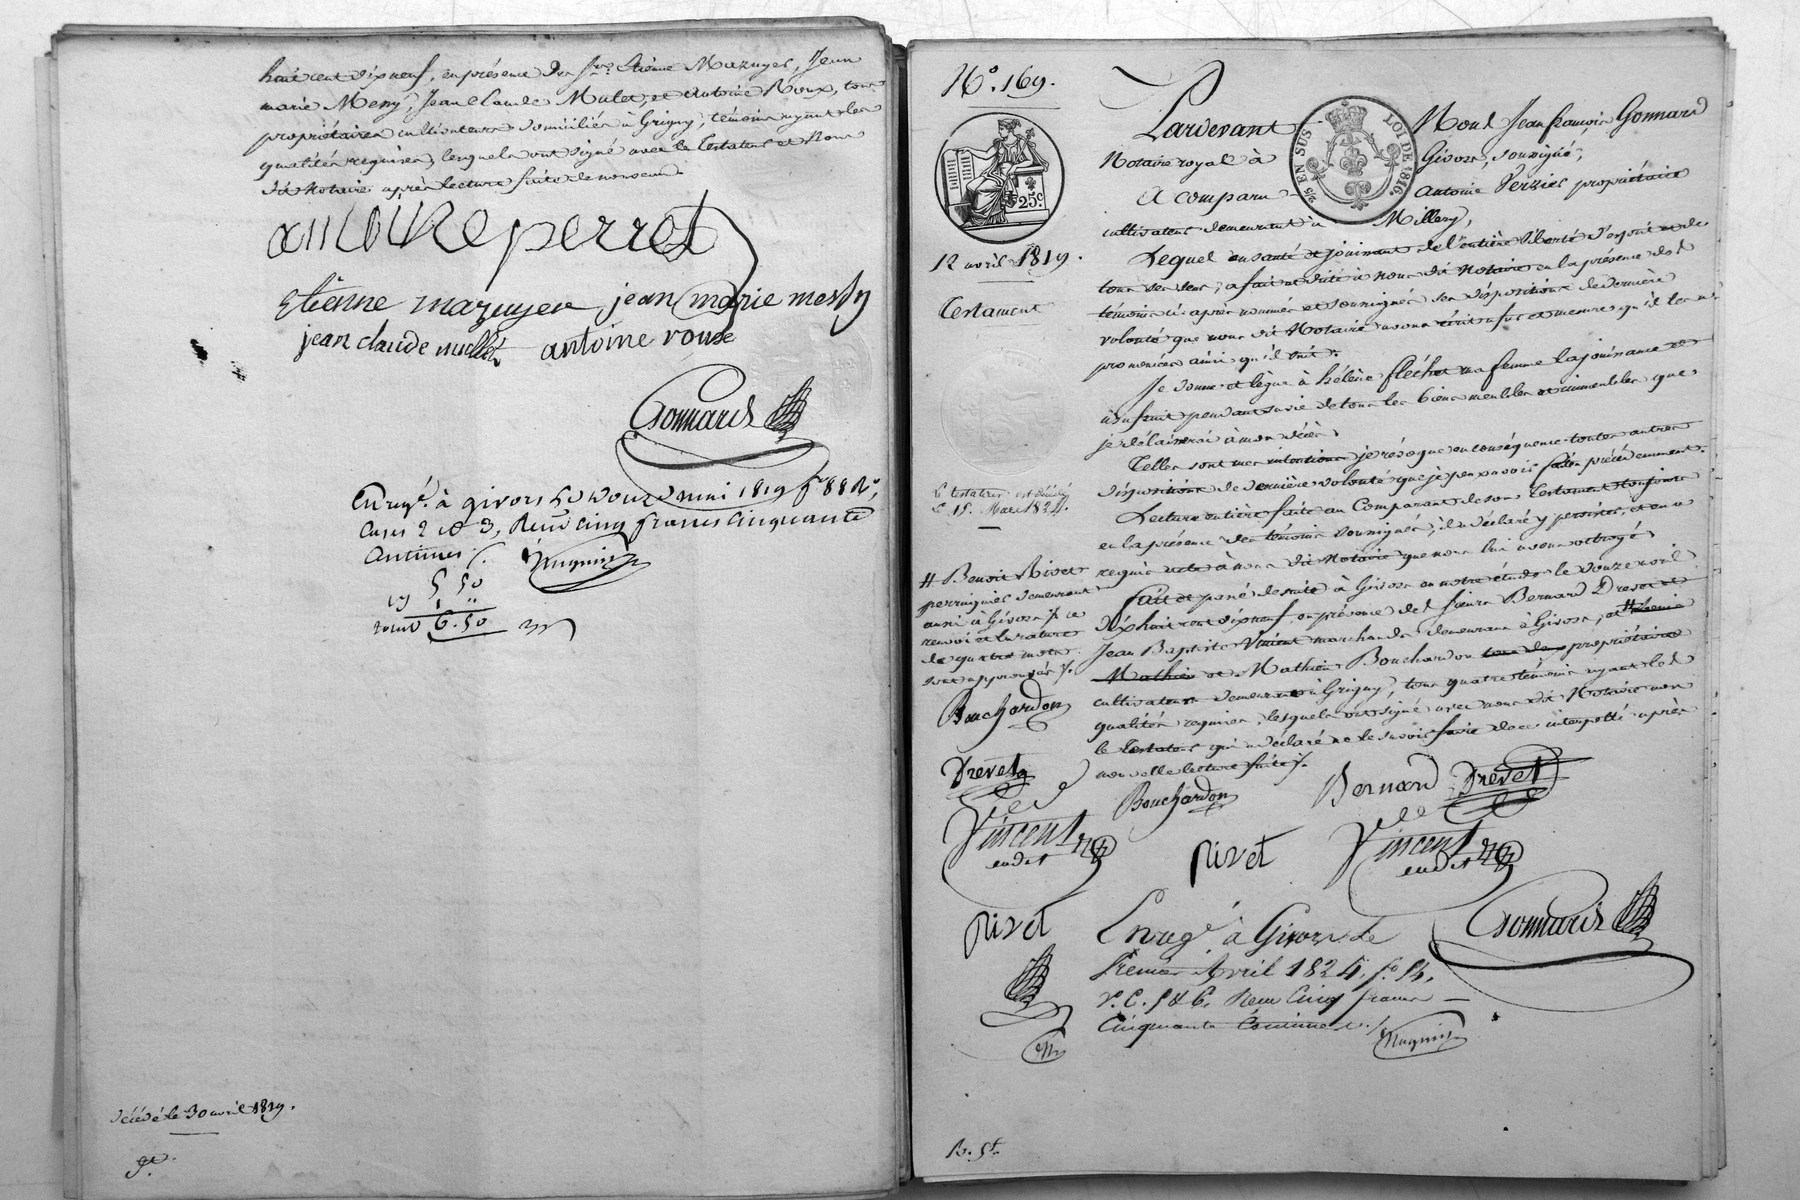 huit cent dixneuf, en présence des Srs Etienne Mazuyer, Jean
marie Messy, Jean Claude Mulet, et Antoine Roux, tous
propriétaires cultivateurs domiciliés à Grigny, témoins ayant les
qualités requises, lesquels ont signé avec le testateur et Nous
dit Notaire après lecture faite de nouveau.
antoine perret
Etienne mazuyer jean marie messy
jean claude mullet antoine roux
Gonnard
Enregé à givors le douze mai 1819 fo 88 Ro,
Cases 2 et 3, Reçu Cinq francs Cinquante
Centimes.
5,50
6.50
décédé le 30 avril 1819.
No. 169.
25c
12 avril 1819.
Testament
25 EN SUS
LOI DE 1816.
Pardevant Nous Jean françois Gonnard
Notaire royal à Givors, soussigné,
A comparu antoine Verzier propriétaire
cultivateur demeurant à Millery,
Lequel en santé et jouissant de l'entière liberté d'esprit et de
tous ses sens, a fait et dicté à nous dit Notaire en la présence des
témoins ci après nommés et soussignés ses dispositions de dernière
volonté que nous dit Notaire avons écrit à fur et mesure qu'il les a
prononcées ainsi qu'il suit.
Je donne et lègue à hélène fléchet ma femme la jouissance et
usufruit pendant sa vie de tous les biens meubles et immeubles que
je délaisserai à mon décès.
Telles sont mes intentions je révoque en conséquence toutes autres
dispositions de dernière volonté que je peux avoir faites précédemment.
Lecture entière faite au Comparant de son testament toujours
en la présence des témoins soussignés, il a déclaré y persister, et en a
requis acte à nous dit Notaire que nous lui avons octroyé
fait et passé de suite à Givors en notre étude le douze avril
dix huit cent dixneuf, en présence des sieurs Bernard Drevet et
Jean Baptiste Vincent marchands demeurant à Givors, et #
Mathieu et Mathieu Bouchardon tous deux propriétaire
cultivateur demeurant à Grigny, tous quatre témoins ayant les
qualités requises, lesquels ont signé avec nous dit Notaire non
le testateur qui a déclaré ne le savoir faire de ce interpellé après
nouvelle lecture faite.
le testateur est décédé
le 15. Mars 1824.
# Benoit Rivet
perruquier demeurant
aussi à Givors ce
renvoi et la rature
de quatre mots
sont approuvés.
Bouchardon
Drevet
Vincent
cadet
Bouchardon
Bernard Drevet
Rivet
Vincent
cadet
Rivet
Gonnard
Enregé à Givors le
Premier Avril 1824, fo 54,
Vo C. 5 & 6. Reçu Cinq francs
Cinquante Centimes.